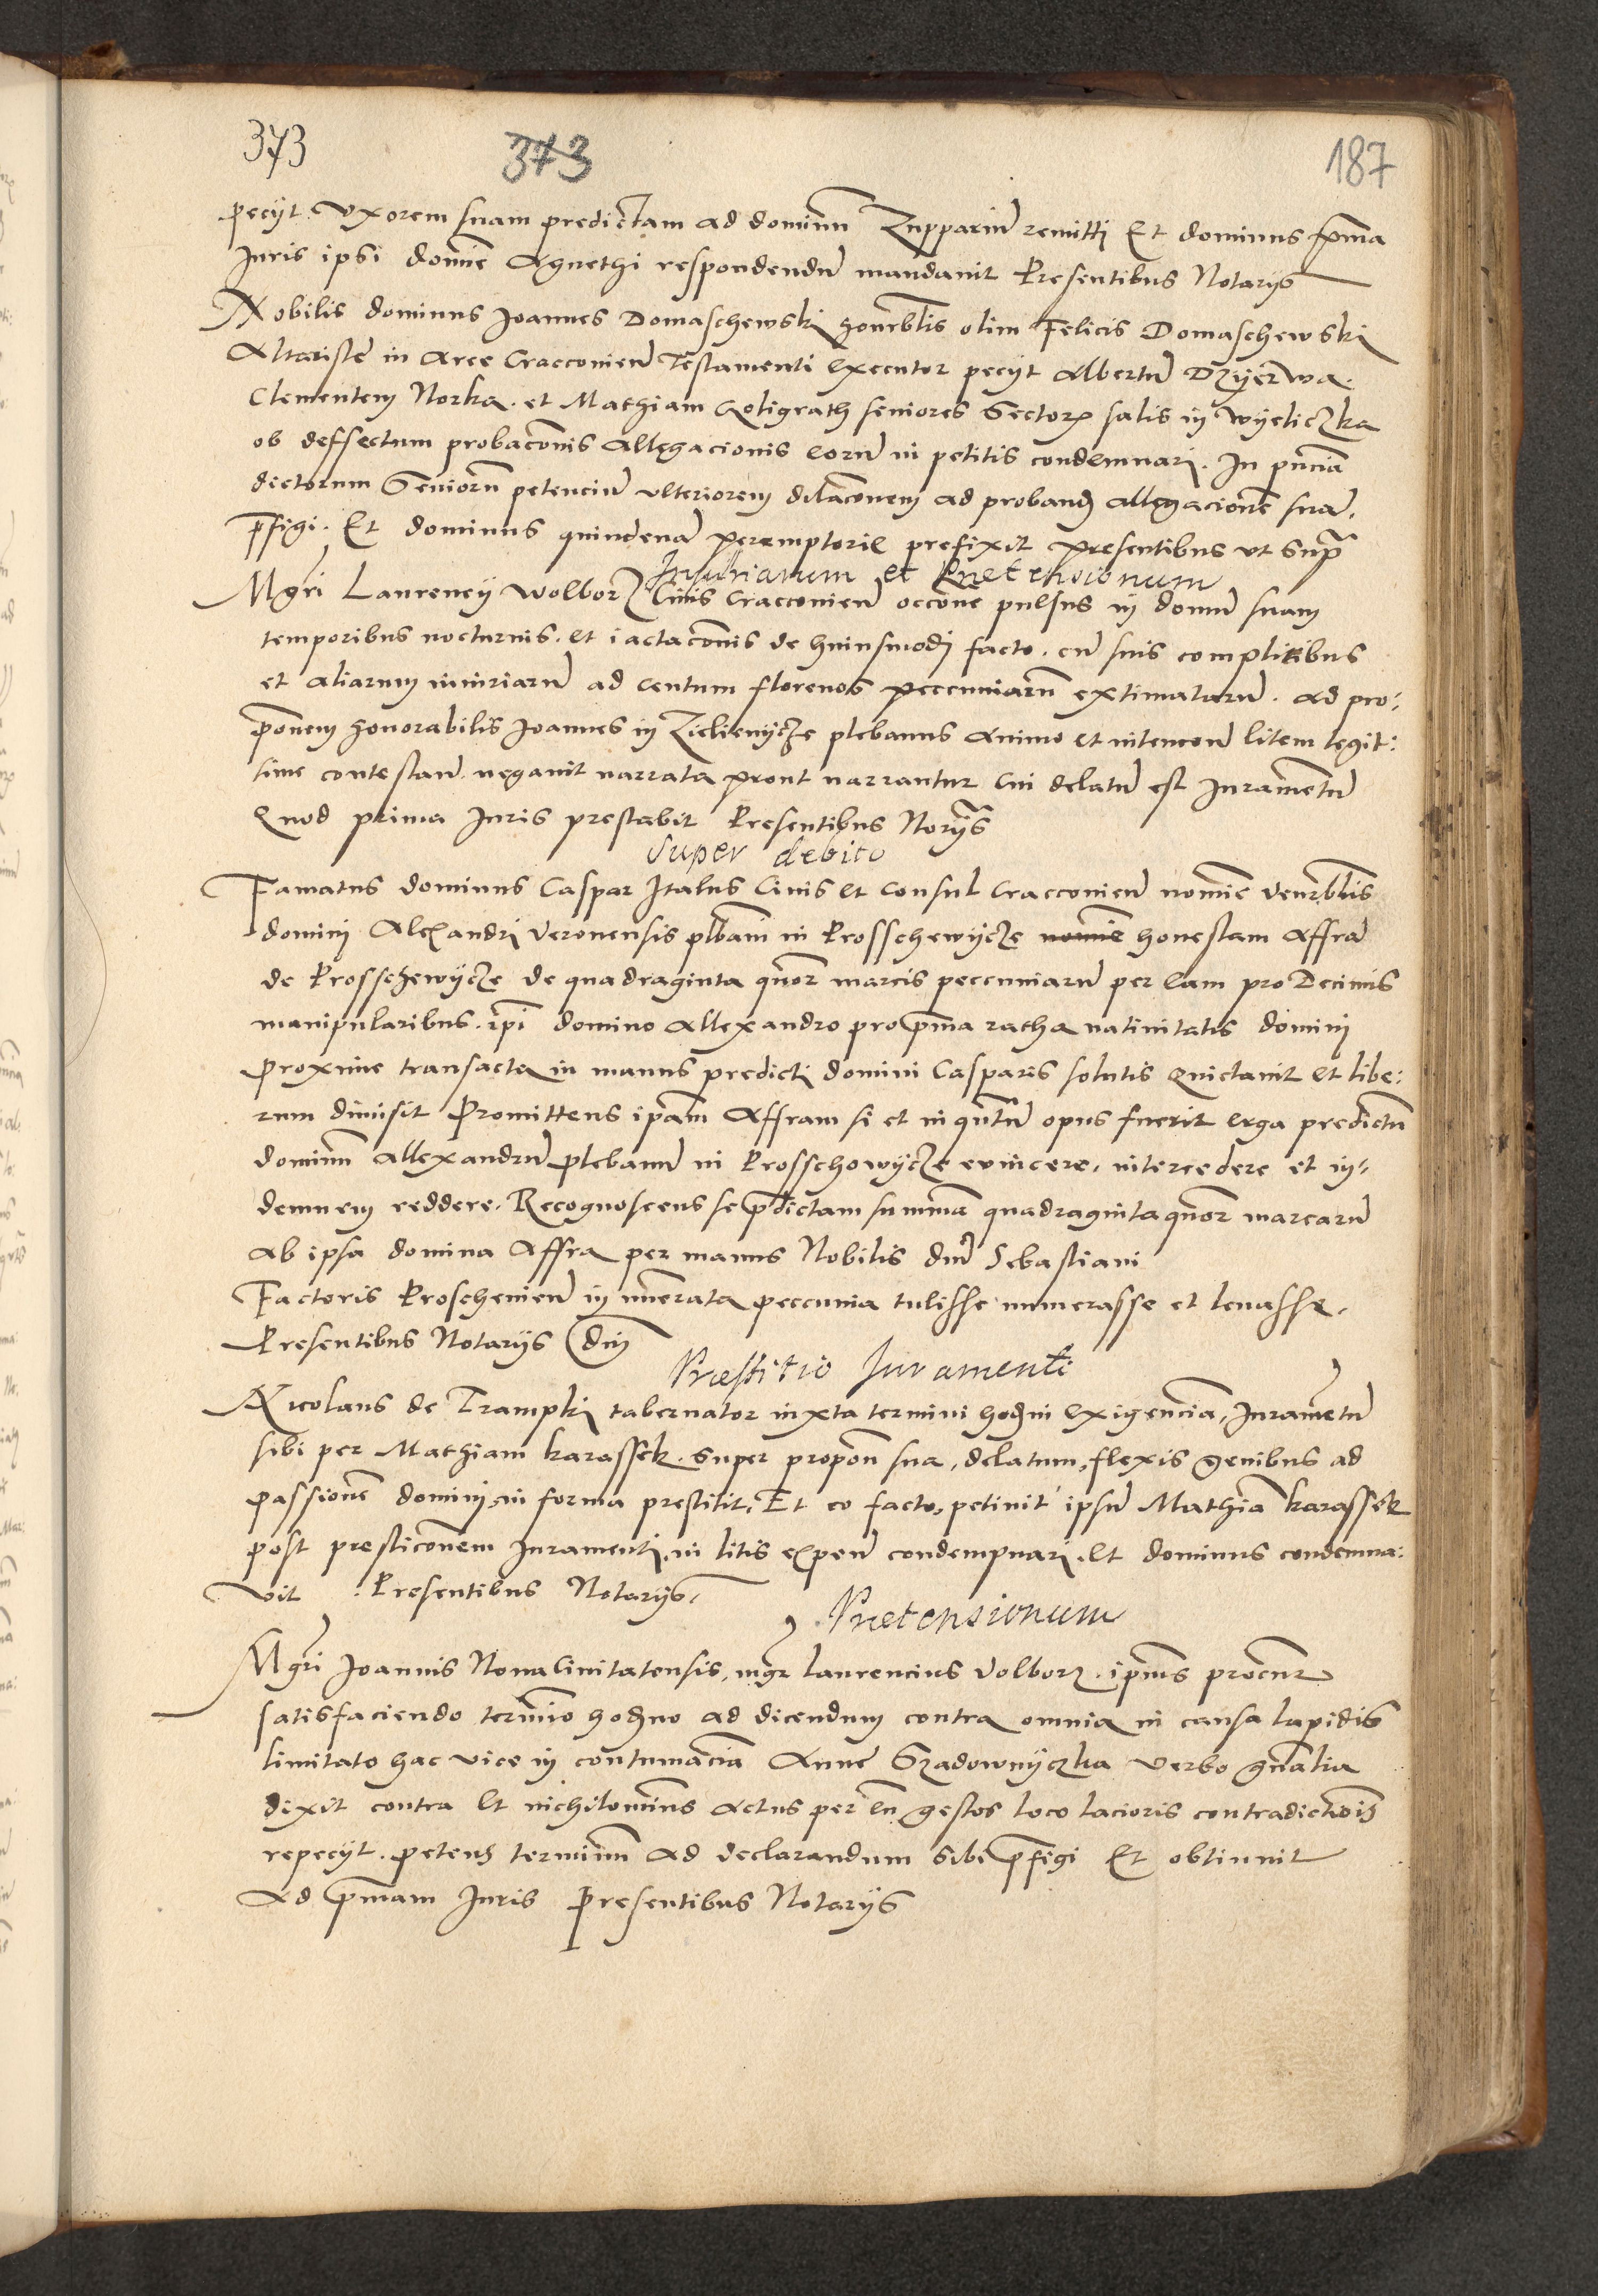 373 373 187
pecyt. Vxorem suam predictam ad dominum Zupparium remitti Et dominus p̄ma
Juris ipsi domine Agnethi respondendum mandauit Presentibus Notarijs
Nobilis dominus Joannes Domaschewskj honrblis olim Felicis Domaschewskj
Altariste in Arce Cracouien Testamenti executor pecyt Albertum Dzyerwa.
Clementem Norka. et Mathiam Goligrath seniores Sectorum salis in Wyeliczka
ob deffectum probacionis Allegacionis eorum in petitis condemnarj. In pn̄cia
dictorum Seniorum petencium vlteriorem dilacionem ad proband Allegacionem suam.
p̄figi. Et dominus quindenam peremptorie prefixit presentibus vt supra
Injuriarum et Praetensionum
Mgri Laurencij Wolborz Ciuis Cracouien occōne pulsus in domum suam
temporibus nocturnis. et iactacōnis de huiusmodj facto. cum suis complicibus
et aliarum iniuriarum ad centum florenos peccuniarum extimatarum. ad pro:
ponem honorabilis Joannes in Zielienycze plebanus Animo et intencōne litem legit:
time contestan. negauit narrata prout narrantur Cui delatum est Juramentum
Quod prima Juris prestabit Presentibus Norijs
super debito
Famatus dominus Caspar Italus Ciuis et Consul Cracouien nomie venrblis
dominj Alexandrj Veronensis plbani in Prosschewycze nomie honestam Affram
de Prosschewycze de quadraginta quor marcis peccuniarum per eam pro Decimis
manipularibus. ipi domino Allexandro pro p̄ma ratha natiuitatis dominj
proxime transacta in manus predictj domini Casparis solutis quictauit et libe:
rum dimisit Promittens ipam Affram si et in qntum opus fuerit erga predictum
dominum Allexandrum plebanum in Prosschowycze euincere, intercedere et in-
demnem reddere. Recognoscens se p̄dictam summam quadraginta quor marcarum
Ab ipsa domina Affra per manus Nobilis dni Sebastiani
Factoris Proschenien in nūerata peccunia tulisse numerasse et leuasse.
Presentibus Notarijs
Praestitio Juramenti
Nicolaus de Trampkj tabernator iuxta termini hodni exigencia, Juramentum
sibi per Mathiam Karassek. super propon sua, delatum, flexis genibus ad
passionem dominj, in forma prestitit, Et eo facto, petiuit ipsum Mathiam Karassek
post presticōnem Juramentj, in litis expen condempnarj. et dominus condemna:
vit Presentibus Notarijs.
Praetensionum
Mgri Joannis Nouaciuitatensis, mgr Laurencius Volborz. ipius procur
satisfaciendo termio hodno ad dicendum contra omnia in causa lapidis
limitato hac vice in contumaciam Anne Szadownyczka verbo gnalia
dixit contra Et nichilominus actus per eum gestos loco lacioris contradictiois
repecyt. petens terminum ad declarandum sibi p̄figi Et obtinuit
Ad p̄mam Juris Presentibus Notarijs